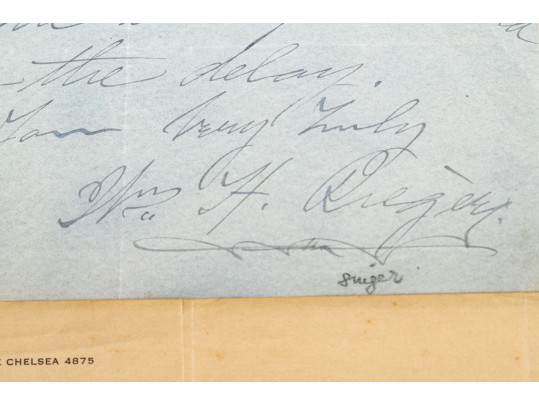 the delay.
Your Very Truly
Wm. H. Rieger.
singer
CHELSEA 4875